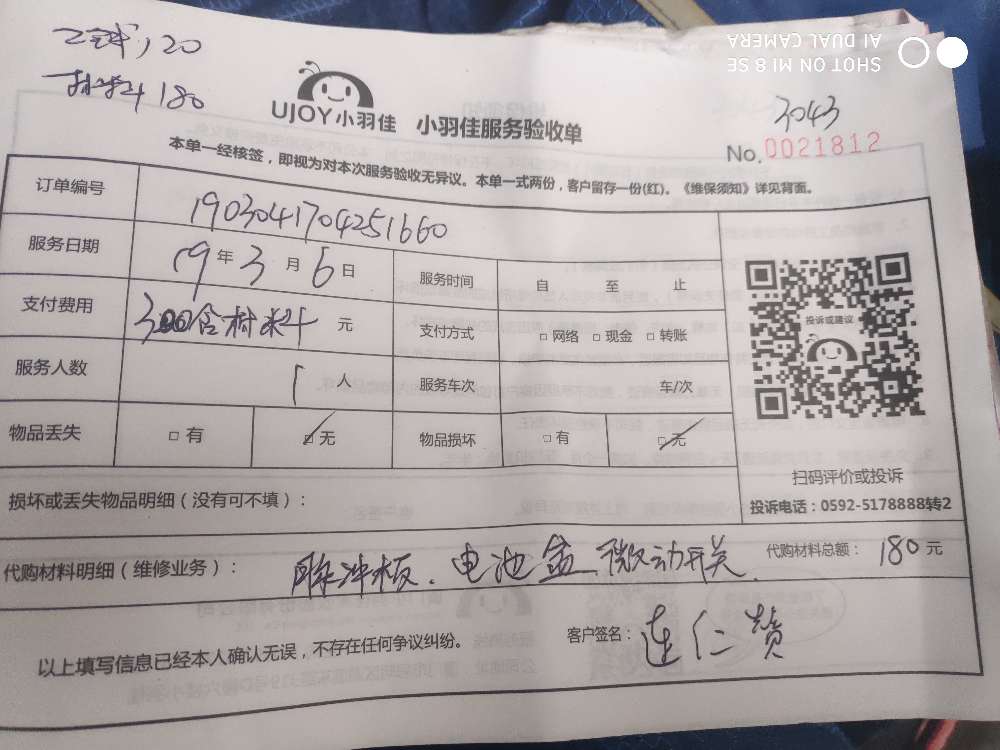 工钱,120
材料180
SHOT ON MI 8 SE
AI DUAL CAMERA
UJOY小羽佳 小羽佳服务验收单
3043
No.0021812
本单一经核签，即视为对本次服务验收无异议。本单一式两份，客户留存一份(红)。《维保须知》详见背面。
订单编号 1903041704251660
服务日期 19年3月6日 服务时间 自 至 止
支付费用 300含材料元 支付方式 □网络 □现金 □转账
服务人数 1人 服务车次 车/次
物品丢失 □有 ☑无 物品损坏 □有 ☑无
投诉或建议
扫码评价或投诉
投诉电话：0592-5178888转2
损坏或丢失物品明细（没有可不填）：
代购材料明细（维修业务）：脉冲板.电池盒.微动开关. 代购材料总额：180元
以上填写信息已经本人确认无误，不存在任何争议纠纷。 客户签名：连仁赞